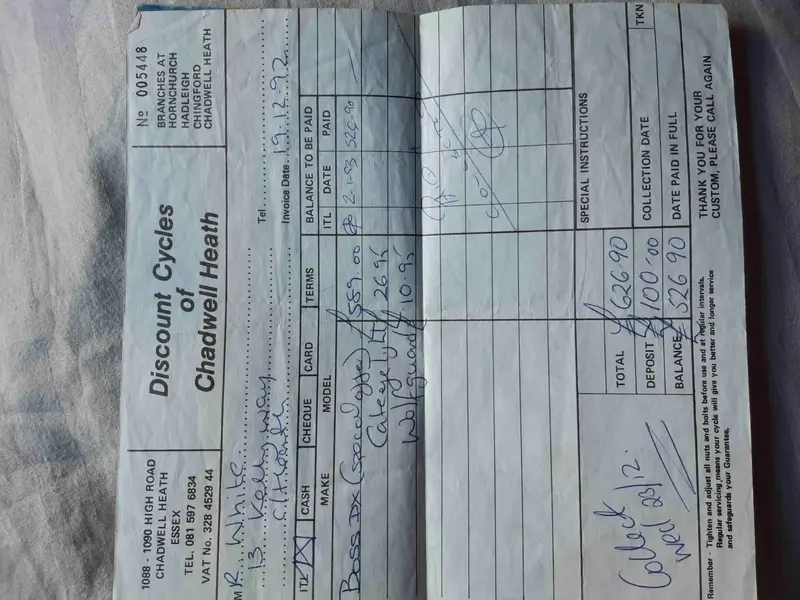 1088 - 1090 HIGH ROAD
CHADWELL HEATH
ESSEX
TEL. 081 597 6834
VAT No. 328 4529 44
Discount Cycles
of
Chadwell Heath
No 005448
BRANCHES AT
HORNCHURCH
HADLEIGH
CHINGFORD
CHADWELL HEATH
MR. White
13 Kelly way Tel
C/Heath Invoice Date 19.12.92
ITL CASH CHEQUE CARD TERMS BALANCE TO BE PAID
MAKE MODEL ITL DATE PAID
Boss DX (specol gype) £559.00 2.1.93 526.90
Cateye light £26.95
Wolfguard £10.95
Collect
Wed 23/12.
TOTAL £626.90
DEPOSIT £100.00
BALANCE £526.90
SPECIAL INSTRUCTIONS
COLLECTION DATE TKN
DATE PAID IN FULL
Remember - Tighten and adjust all nuts and bolts before use and at regular intervals.
Regular servicing means your cycle will give you better and longer service
and safeguards your Guarantee.
THANK YOU FOR YOUR
CUSTOM, PLEASE CALL AGAIN